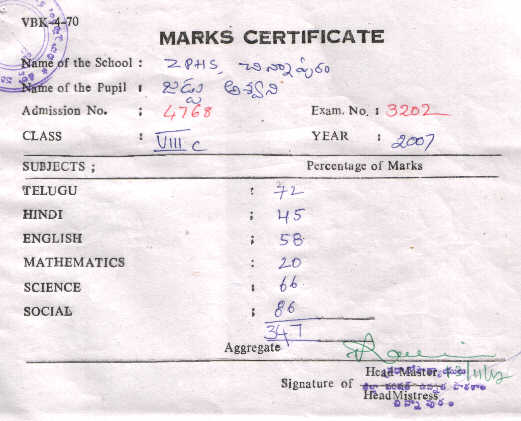 VBK-4-70
MARKS CERTIFICATE
Name of the School : ZPHS, చిన్నాపురం
Name of the Pupil : జడ్పు అశ్విని
Admission No. : 4768 Exam. No. : 3202
CLASS : VIII C YEAR : 2007
SUBJECTS ; Percentage of Marks
TELUGU : 72
HINDI ; 45
ENGLISH ; 58
MATHEMATICS : 20
SCIENCE : 66
SOCIAL ; 86
347
Aggregate
Head Master,
Signature of
Head Mistress